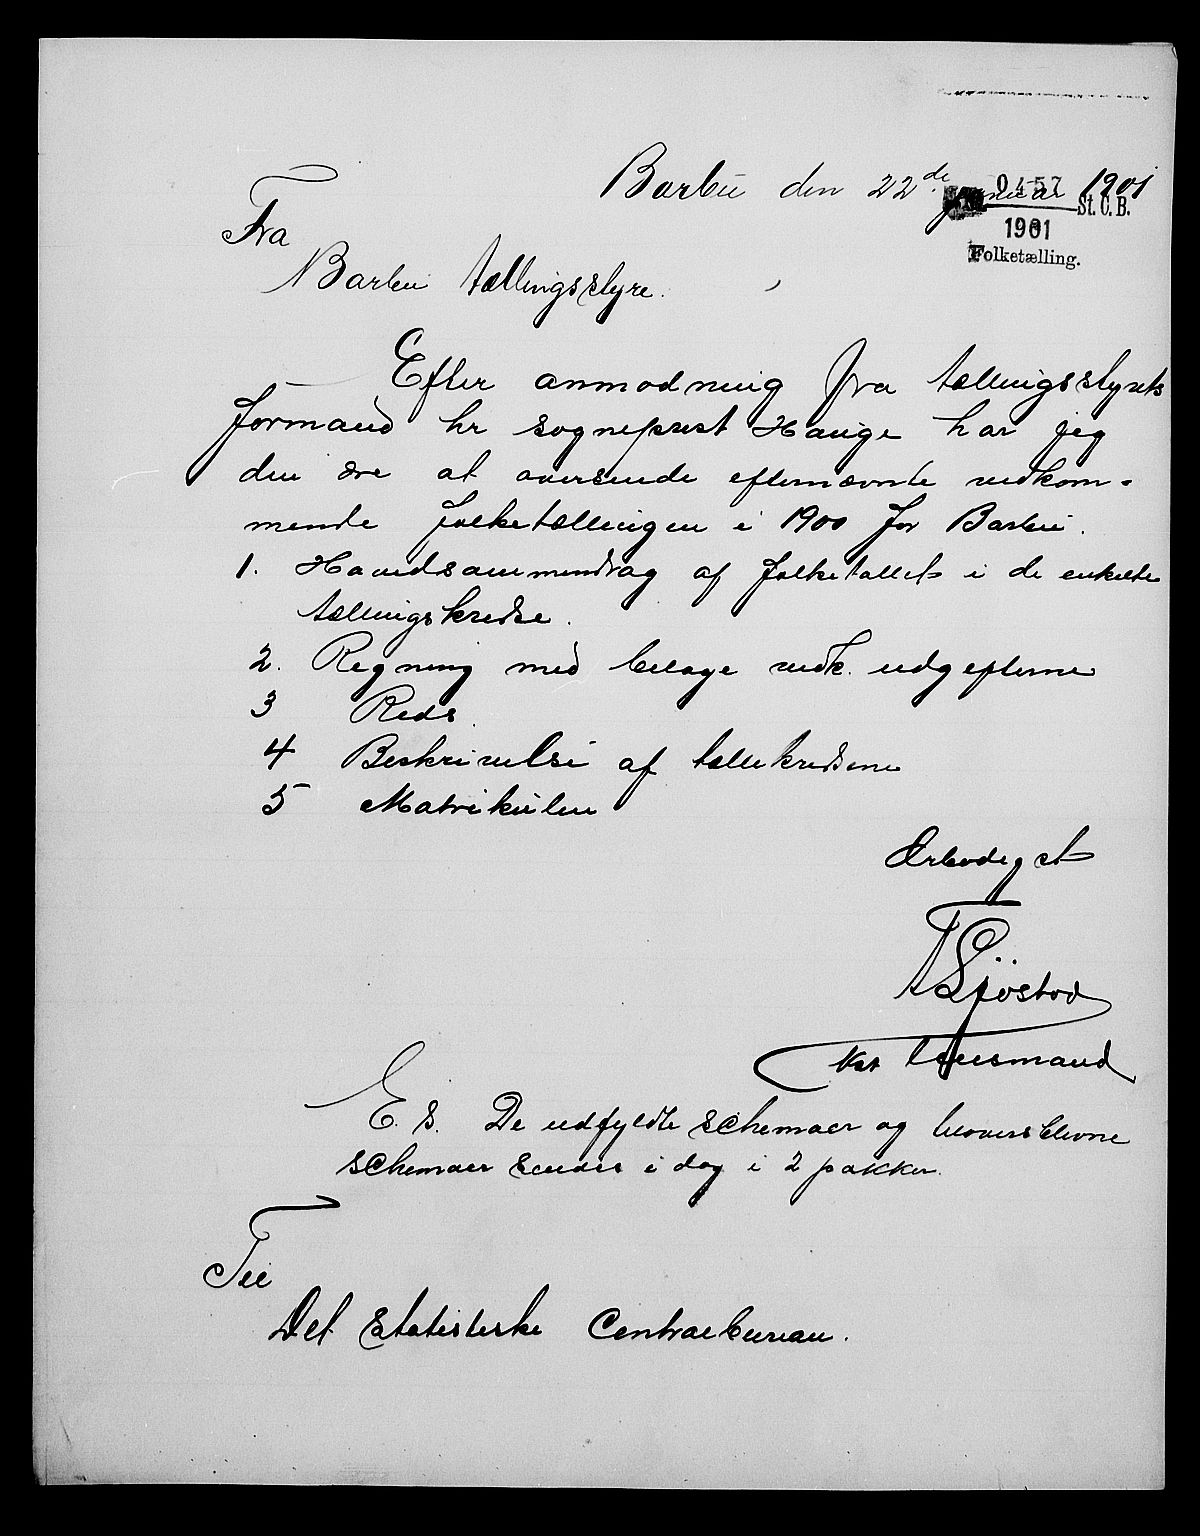 Barbu den 22de januar 1901
0457
St. C. B.
1901
Folketælling.
Fra
Barbu tællingsstyre.
Efter anmodning fra tællingsstyrets
formand hr sogneprest Hauge har jeg
den ære at oversende efternævnte vedkom-
mende folketællingen i 1900 for Barbu.
1. Hovedsammendrag af folketallet i de enkelte
tællingskredse.
2. Regning med bilage vedk. udgifterne
3 Reds.
4 Beskrivelse af tællekredsene
5 Matrikulen
Ærbødigst
T Sjöstod
kst lensmand
E. S. De udfyldte schemaer og tiloversblevne
schemaer sendes i dag i 2 pakker.
Til
Det statistiske Centralbureau.